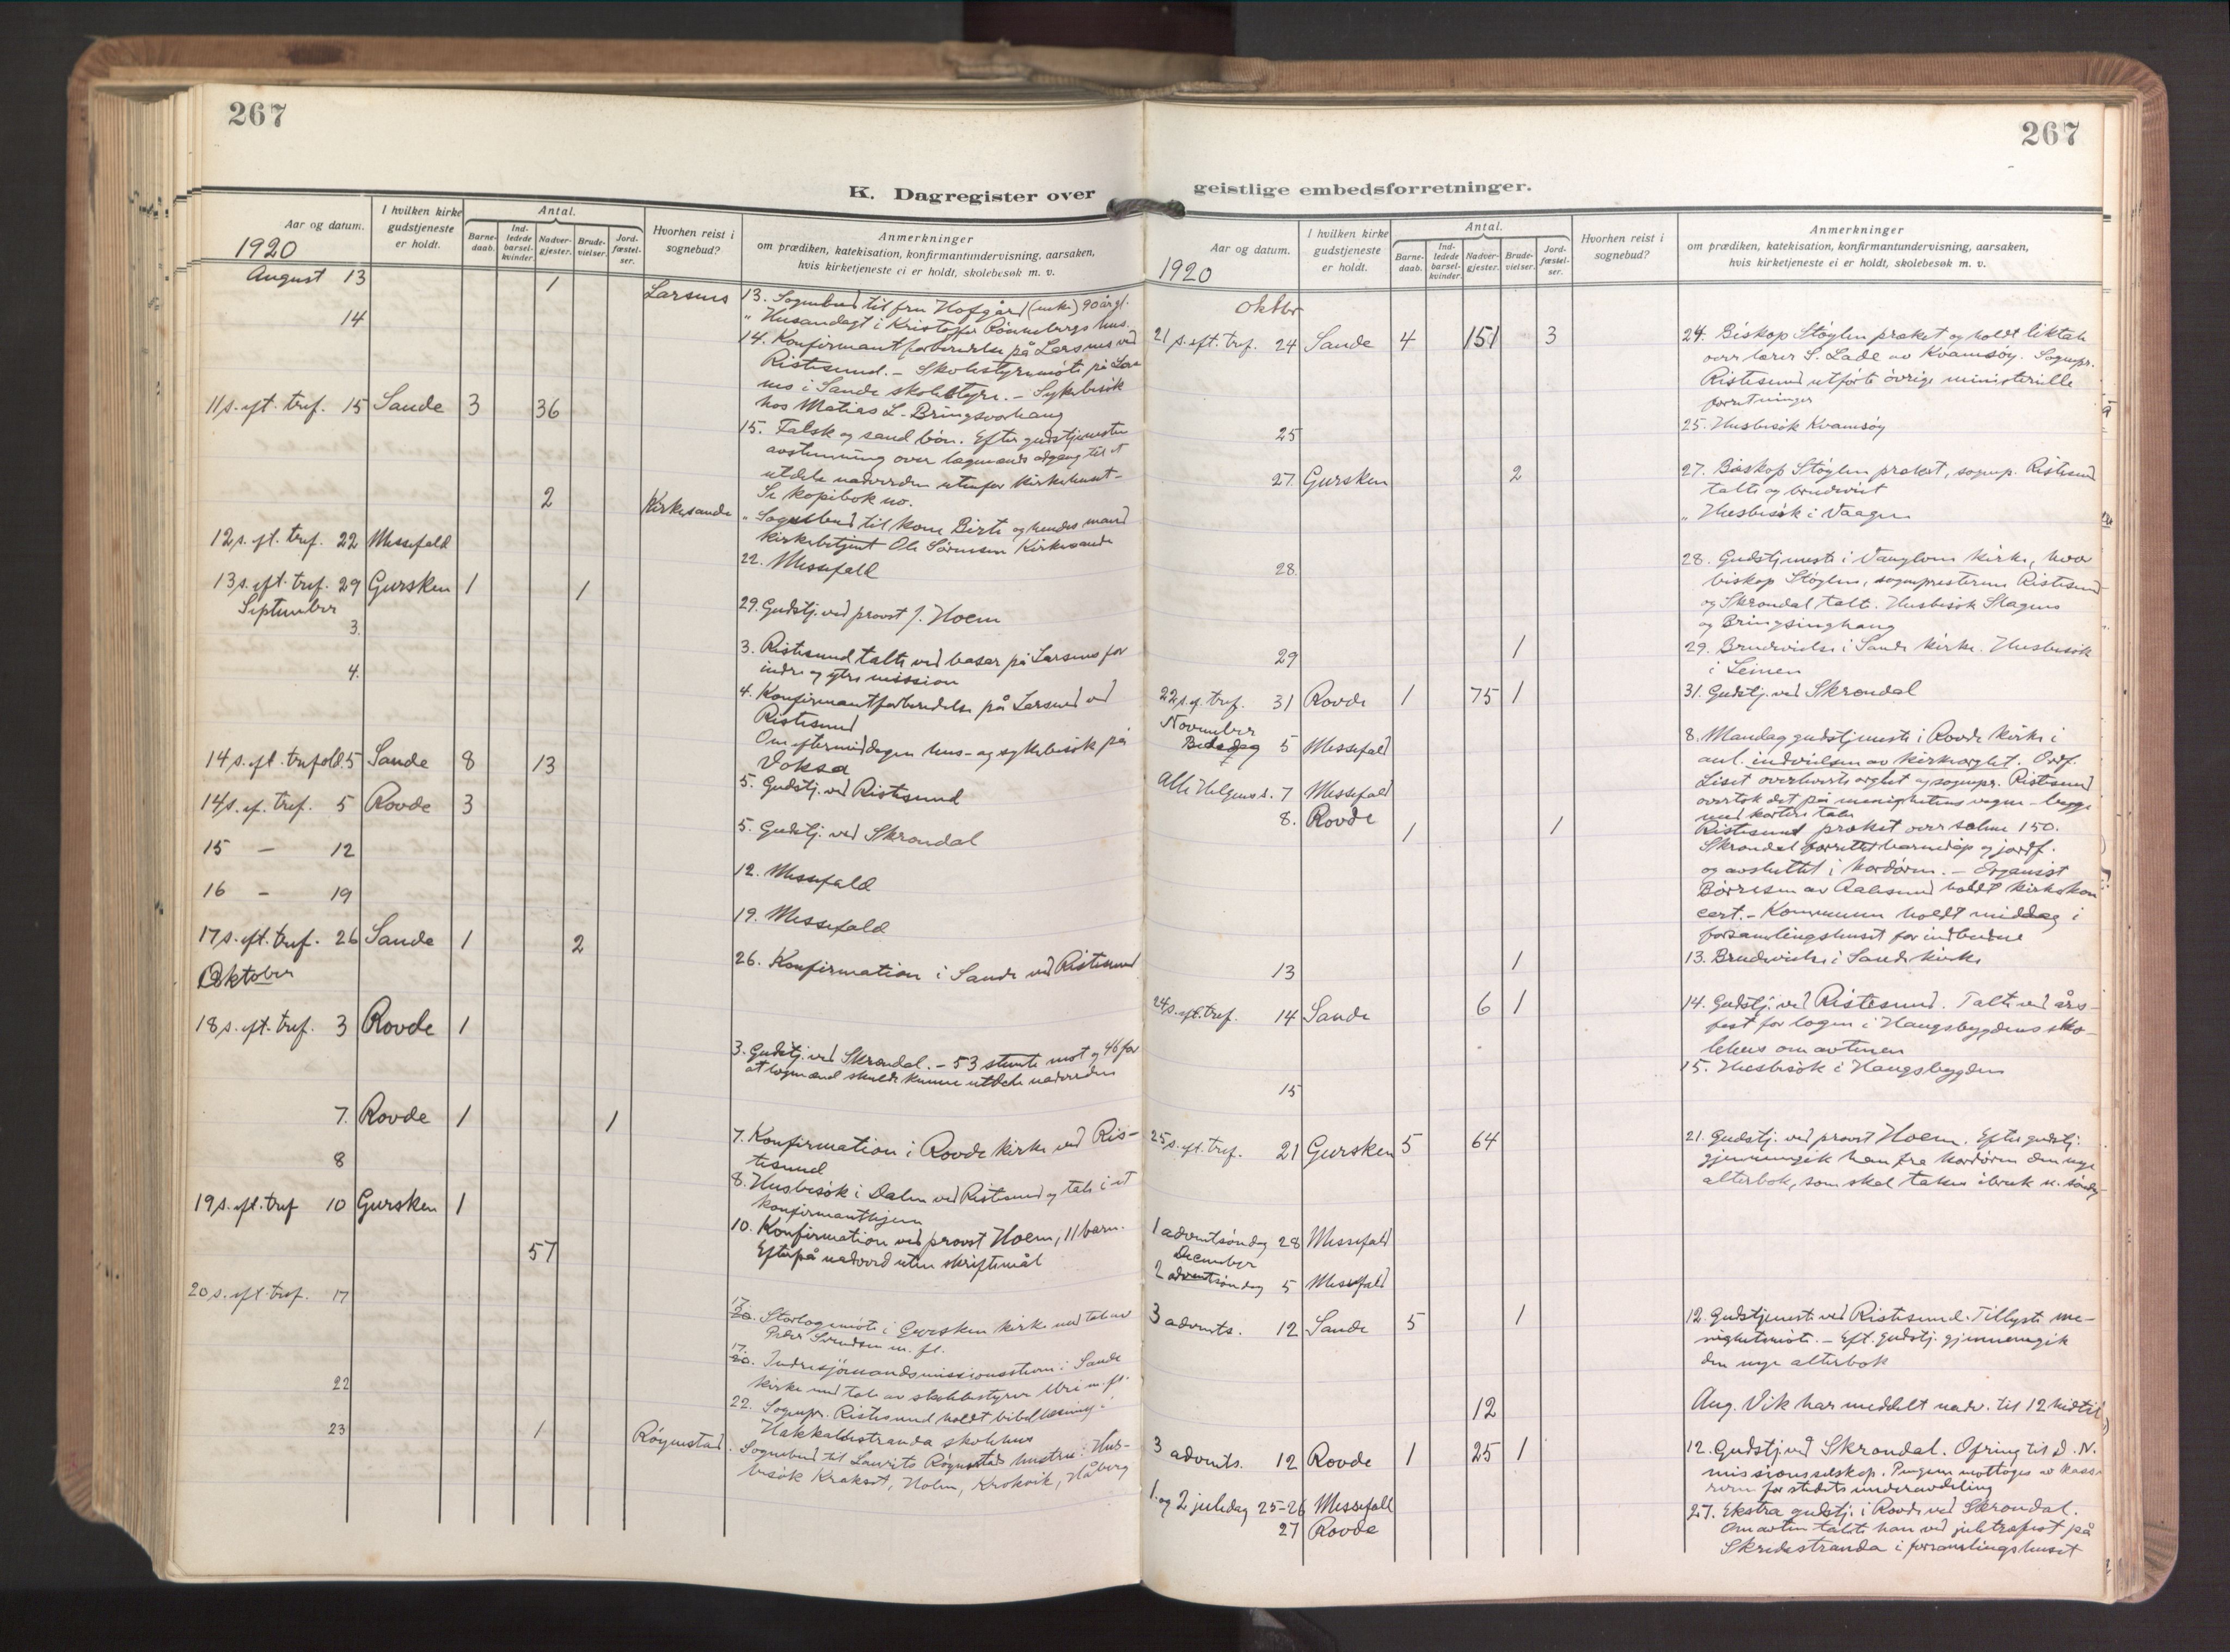 267
K. Dagregister over
Aar og datum.
1920
I hvilken kirke
gudstjeneste
er holdt.
Antal.
Barne-
daab.
Ind-
ledede
barsel-
kvinder.
Nadver-
gjester.
Brude-
vielser.
Jord-
fæstel-
ser.
Hvorhen reist i
sognebud?
Anmerkninger
om prædiken, katekisation, konfirmantundervisning, aarsaken,
hvis kirketjeneste ei er holdt, skolebesøk m. v.
August 13 1 Larsnes
13. Sognebud til fru Hofgård (enke) 90 år gl.
" Husandagt i Kristoffer Rönnebergs hus.
14
14. Konfirmantforberedelse på Larsnes ved
Ristesund. – Skolestyremöte på Lars
nes i Sande skolestyre. – Sykebesök
hos Matias L. Bringsvorhaug
11 s. eft. tref. 15 Sande 3 36
15. Falsk og sand bön. Efter gudstjenesten
avstemning over lægmænds adgang til at
utdele nadverden utenfor kirkehuset –
Se kopibok no.
2 Kirkesande
" Sognebud til kone Birte og hendes mand
kirkebetjent Ole Sörensen Kirkesande
12 s. eft. tref. 22 Messefald
22. Messefald
13 s. eft. tref. 29 Gursken 1 1
29. Gudstj. ved provst J. Hoem
September
3.
3. Ristesund talte ved basar på Larsnes for
indre og ytre mission
4.
4. Konfirmantforberedelse på Larsnes ved
Ristesund
Om eftermiddagen hus- og sykebesök på
Voksa
14 s. eft. trefold. 5 Sande 8 13
5. Gudstj. ved Ristesund
14 s. ef. tref. 5 Rovde 3
5. Gudstj. ved Skrondal
15 – 12
12. Messefald
16 – 19
19. Messefald
17 s. eft. tref. 26 Sande 1 2
26. Konfirmation i Sande ved Ristesund
Oktober
18 s. eft. tref. 3 Rovde 1
3. Gudstj. ved Skrondal. – 53 stemte mot og 46 for
at lægmænd skulde kunne utdele nadverden
7. Rovde 1 1
7. Konfirmation i Rovde kirke ved Ris-
tesund
8
8. Husbesök i Dalen ved Ristesund og tale i et
konfirmanthjem
19 s. eft. tref 10 Gursken 1
10. Konfirmation ved provst Hoem, 11 barn.
57
Efterpå nadverd uten skriftemål
20 s. eft. tref. 17
17. Storlogemöte i Gursken kirke med tale av
Peder Svendsen m. fl.
17. Indresjömandsmissionsstevne i Sande
kirke med tale av skolebestyrer Uri m. fl.
22
22. Sognepr. Ristesund holdt bibellæsning i
Hakkaldestranda skolehus
23 1 Röynestad.
Sognebud til Laurits Röynestads hustru. Hus-
besök Krakset, Holen, Krokvik, Håberg
267
geistlige embedsforretninger.
Aar og datum.
1920
I hvilken kirke
gudstjeneste
er holdt.
Antal.
Barne-
daab.
Ind-
ledede
barsel-
kvinder.
Nadver-
gjester.
Brude-
vielser.
Jord-
fæstel-
ser.
Hvorhen reist i
sognebud?
Anmerkninger
om prædiken, katekisation, konfirmantundervisning, aarsaken,
hvis kirketjeneste ei er holdt, skolebesøk m. v.
Oktbr
21 s. eft. tref. 24 Sande 4 151 3
24. Biskop Stöylen præket og holdt liktale
over lærer S. Lade av Kvamsöy. Sognepr.
Ristesund utförte övrige ministerielle
forretninger
25
25. Husbesök Kvamsöy
27. Gursken 2
27. Biskop Stöylen præket, sognep. Ristesund
talte og brudeviet
" Husbesök i Vaagen
28.
28. Gudstjeneste i Vanylven kirke, hvor
biskop Stöylen, sogneprestene Ristesund
og Skrondal talte. Husbesök Slagnes
og Bringsinghaug
29 1
29. Brudevielse i Sande kirke. Husbesök
i Leinen
22 s. ef. tref. 31 Rovde 1 75 1
31. Gudstj. ved Skrondal
November
Bededag 5 Messefald
8. Mandag gudstjeneste i Rovde kirke i
anl. indvielsen av kirkeorglet. Ordf.
Liset overleverte orglet og sognepr. Ristesund
overtok det på menighetens vegne – begge
med kortere taler
Alle Helgensd. 7 Messefald
8. Rovde 1 1
Ristesund præket over salme 150.
Skrondal forrettet barnedåp og jordf.
og avsluttet i kordören. – Organist
Börresen av Aalesund holdt kirkekon
cert. – Kommunen holdt middag i
forsamlingshuset for indbudne
13 1
13. Brudevielse i Sande kirke
24 s. eft. tref. 14 Sande 6 1
14. Gudstj. ved Ristesund. Talte ved års-
fest for logen i Haugsbygdens sko-
lehus om avtenen
15
15. Husbesök i Haugsbygden
25 s. eft. tref. 21 Gursken 5 64
21. Gudstj. ved provst Hoem. Efter gudstj.
gjennemgik han fra kordören den nye
alterbok, som skal takes i bruk n. söndag
1 adventsöndag 28 Messefald
December
2 adventsöndag 5 Messefald
3 advents. 12 Sande 5 1
12. Gudstjeneste ved Ristesund. Tillyste me-
nighetsmöte. – Eft. gudstj. gjennemgik
den nye alterbok
12
Aug. Vik har meddelt nadv. til 12 hidtil
3 advents. 12 Rovde 1 25 1
12. Gudstj. ved Skrondal. Ofring til d. N.
missionsselskap. Pengene mottoges av kasse-
reren for stedets underavdeling
1. og 2 juledag 25-26 Messefall
27 Rovde
27. Ekstra gudstj. i Rovde ved Skrondal.
Om avten talte han ved juletrefest på
Skredestranda i forsamlingshuset